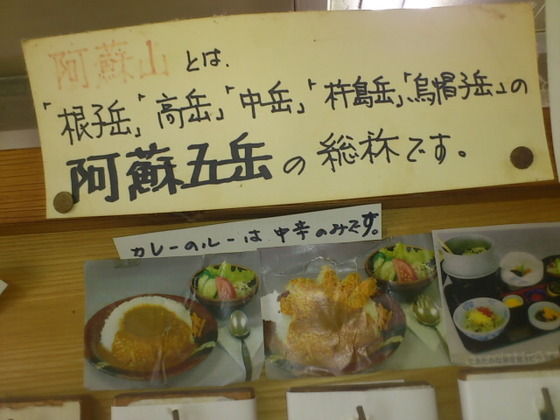 阿蘇山とは、
「根子岳」「高岳」「中岳」「杵島岳」「烏帽子岳」の
阿蘇五岳の総称です。
カレーのルーは中辛のみです。